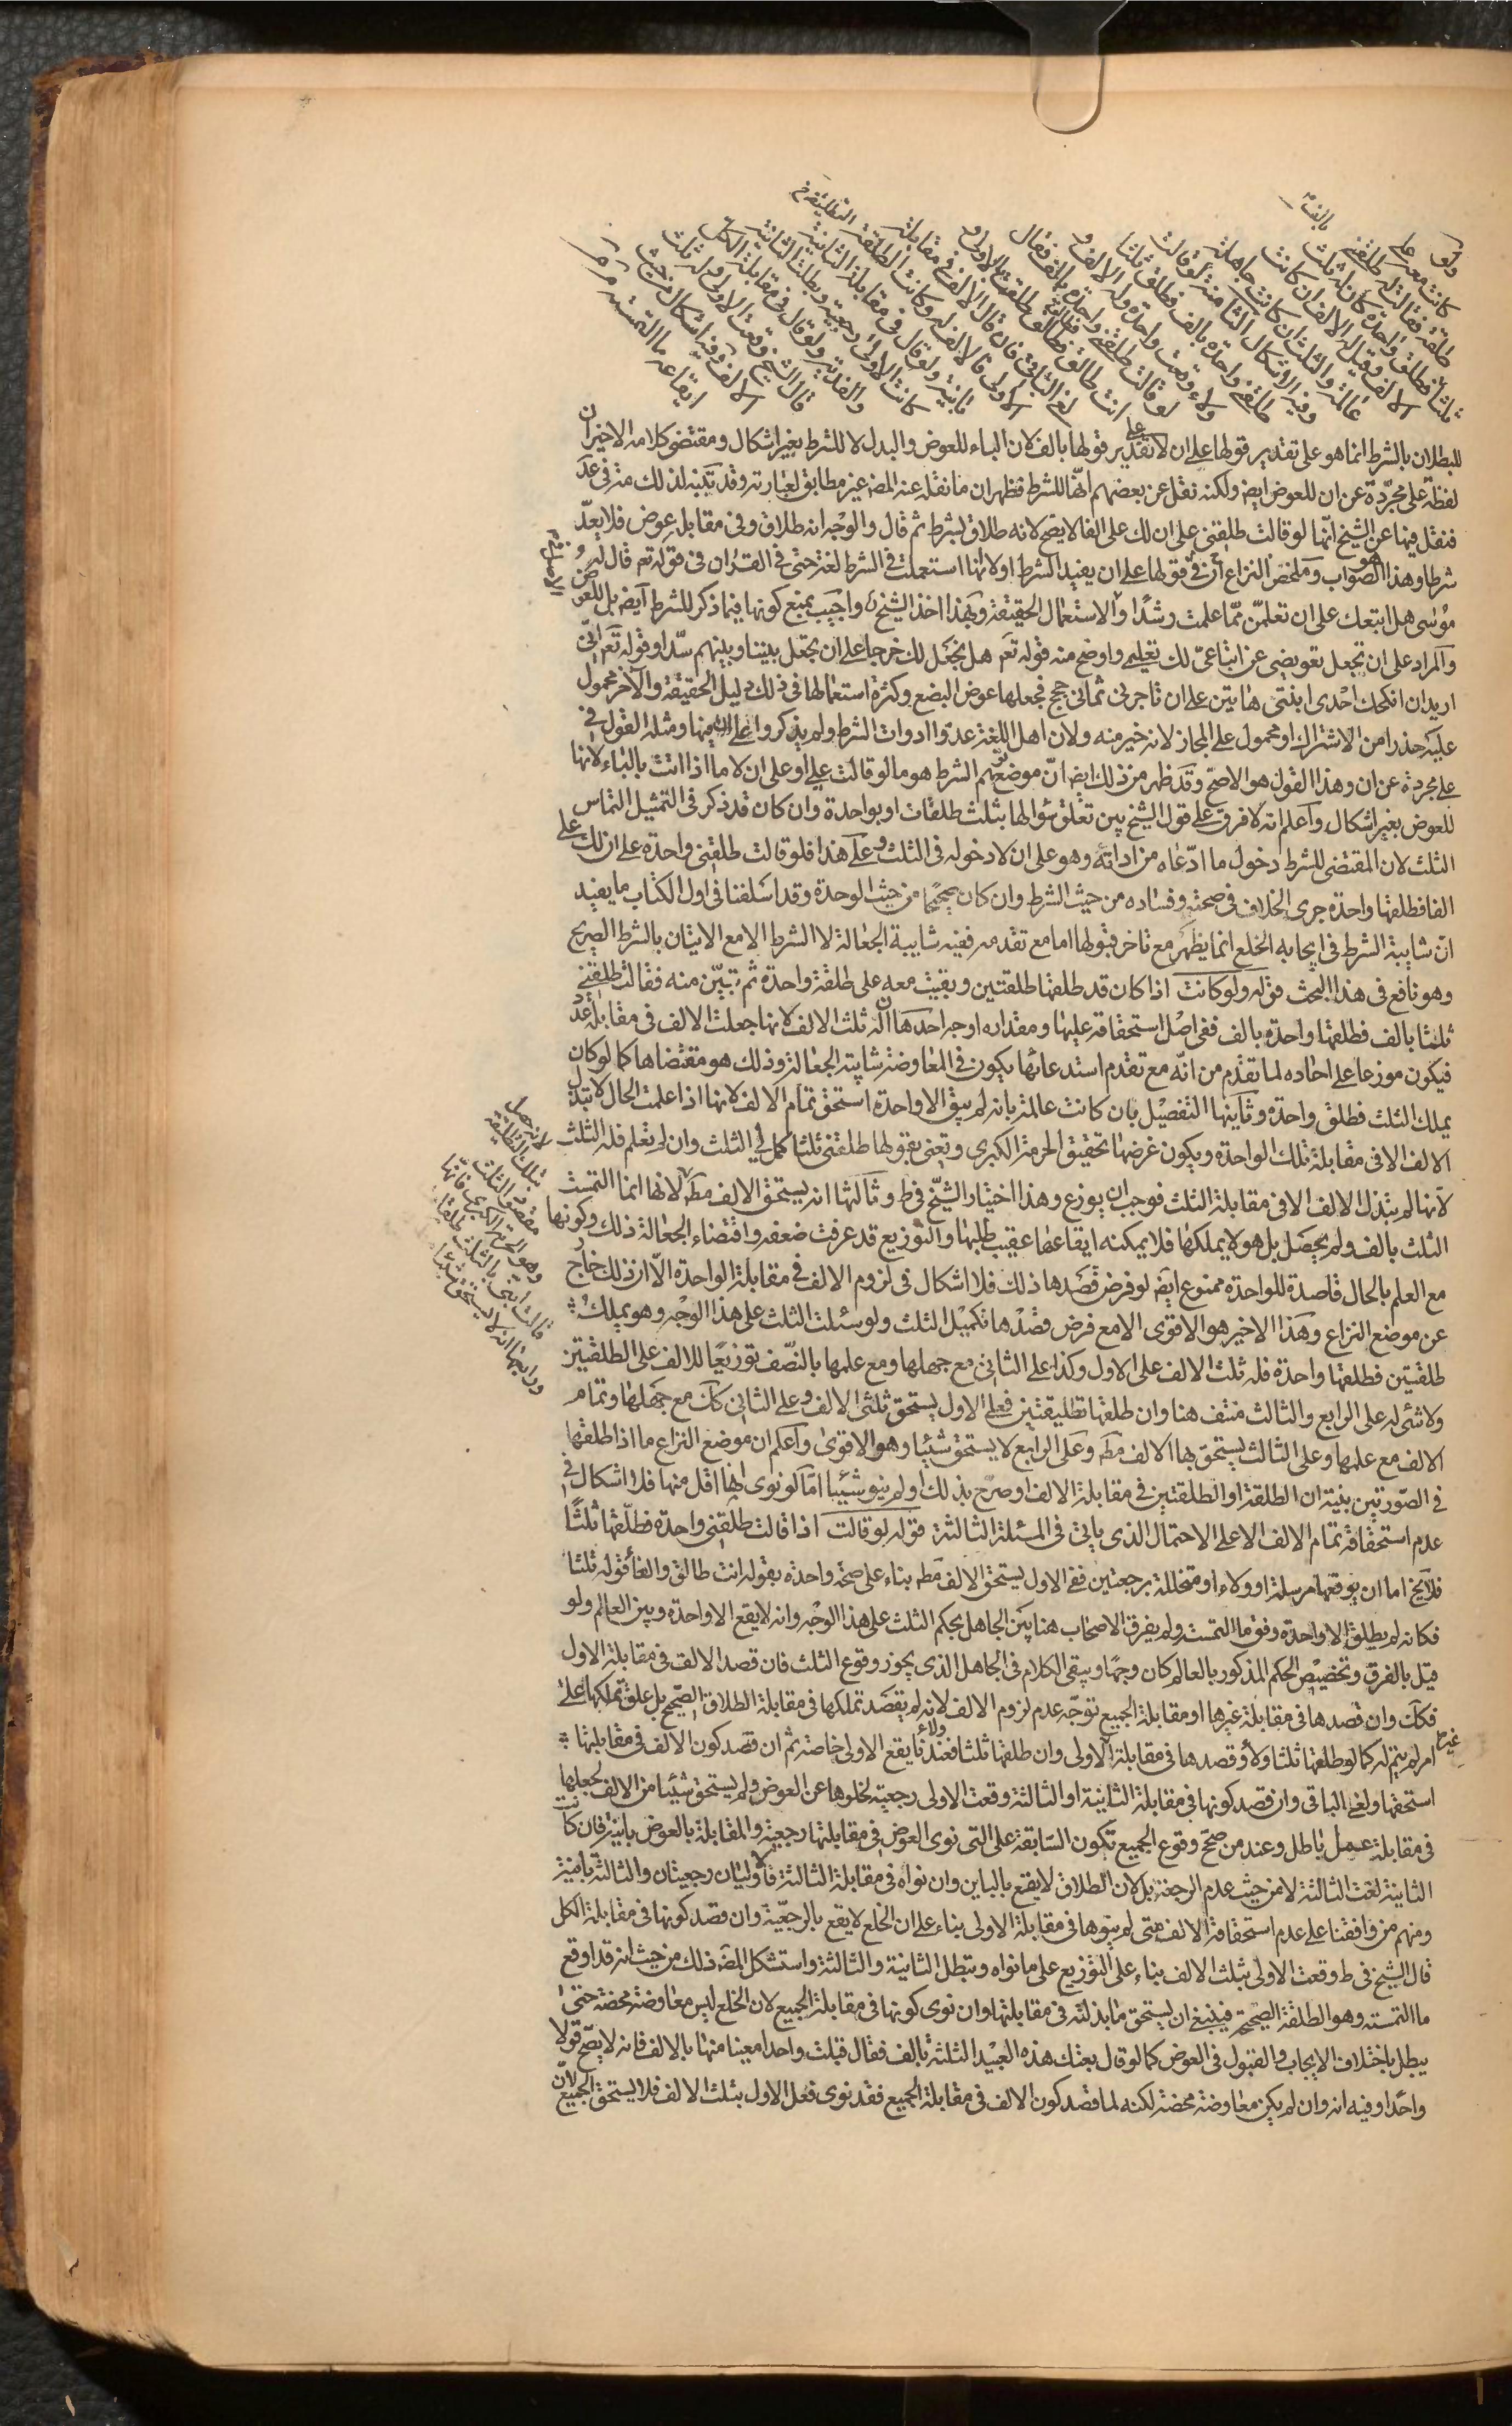 ولو
كانت معه على
طلقة فقالت له طلقني
ثلثا بالف
فطلق واحدة كان له ثلث
الالف وقيل له الالف ان كانت
عالمة والثلث ان كانت جاهلة
وفيه الاشكال الثامنة لو قالت
طلقني واحدة بالف فطلق ثلثا
ولاء وقعت واحدة وله الالف و
لو قالت طلقني واحدة بالف فقال
انت طالق فطالق فطالق طلقت بالاولى و
لغي الباقي فان قال الالف في مقابلة
الاولى فالالف له وكانت الطلقة
بائنة ولو قال في مقابلة الثانية
كانت الاولى رجعية وبطلت الثانية
والفدية ولو قال في مقابلة الكل
قال الشيخ وقعت الاولى وله ثلث
الالف وفيه اشكال من حيث
ايقاعه ما التمسته
للبطلان بالشرط انما هو على تقدير قولها على ان لا على تقدير قولها بالف لان الباء للعوض والبدل لا للشرط بغير اشكال ومقتضى كلامه الاخير ان
لفظة على مجردة عن ان للعوض ايض ولكنه نقل عن بعضهم انها للشرط فظهر ان ما نقله عنه المص غير مطابق لعبارته وقد تنبه لذلك منه في عد
فنقل فيها عن الشيخ انها لو قالت طلقني على ان لك على الفا لا يصح لانه طلاق بشرط ثم قال والوجه انه طلاق وفي مقابله عوض فلا يعد
شرطا وهذا هو الصواب وملخص النزاع ان في قولها على ان يفيد الشرط او لا لانها استعملت في الشرط لغة حتى في القران في قوله تع قال له
موسى هل اتبعك على ان تعلمن مما علمت رشدا والاستعمال الحقيقة وبهذا اخذ الشيخ واجيب بمنع كونها فيما ذكر للشرط ايض بل للعوض
والمراد على ان تجعل تعويضي عن اتباعي لك تعليمي واوضح منه قوله تعم هل نجعل لك خرجا على ان تجعل بيننا وبينهم سدا وقوله تعم اني
اريد ان انكحك احدى ابنتي هاتين على ان تاجرني ثماني حجج فجعلها عوض البضع وكثرة استعمالها في ذلك دليل الحقيقة والاخر محمول
عليه حذرا من الاشتراك او محمول على المجاز لانه خير منه ولان اهل اللغة عدوا ادوات الشرط ولم يذكروا على ان منها ومثله القول في
على مجردة عن ان وهذا القول هو الاصح وقد ظهر من ذلك ايض ان موضع توهم الشرط هو ما لو قالت على او على ان لا ما اذا اتت بالباء لانها
للعوض بغير اشكال واعلم انه لا فرق على قول الشيخ بين تعلق سؤالها بثلث طلقات او بواحدة وان كان قد ذكر في التمثيل التماس
الثلث لان المقتضي للشرط دخول ما ادعاه من اداته وهو على ان لا دخوله في الثلث وعلى هذا فلو قالت طلقني واحدة على ان لك على
الفا فطلقها واحدة جرى الخلاف في صحته وفساده من حيث الشرط وان كان صحيحا من حيث الوحدة وقد اسلفنا في اول الكتاب ما يفيد
ان شايبة الشرط في ايجابه الخلع انما يظهر مع تاخر قبولها اما مع تقدمه ففيه شايبة الجعالة لا الشرط الا مع الاتيان بالشرط الصريح
وهو نافع في هذا البحث قوله ولو كانت اذا كان قد طلقها طلقتين وبقيت معه على طلقة واحدة ثم تبين منه فقالت طلقني
ثلثا بالف فطلقها واحدة بالف ففي اصل استحقاقه عليها ومقداره اوجه احدها ان له ثلث الالف لانها جعلت الالف في مقابلة عدد
فيكون موزعا على احاده لما تقدم من انه مع تقدم استدعائها يكون في المعاوضة شايبة الجعالة وذلك هو مقتضاها كما لو كان
يملك الثلث فطلق واحدة وثانيها التفصيل بان كانت عالمة بانه لم يبق الا واحدة استحق تمام الالف لانها اذا علمت الحال لا تبذل
الالف الا في مقابلة تلك الواحدة ويكون غرضها تحقيق الحرمة الكبرى وتعني بقولها طلقني ثلثا كمل لي الثلث وان لم تعلم فله الثلث
لانها لم تبذل الالف الا في مقابلة الثلث فوجب ان يوزع وهذا اختيار الشيخ في ط وثالثها انه يستحق الالف مطلا لانها انما التمست
الثلث بالف ولم يحصل بل هو لا يملكها فلا يمكنه ايقاعها عقيب طلبها والتوزيع قد عرفت ضعفه واقتضاء الجعالة ذلك وكونها
مع العلم بالحال قاصدة للواحدة ممنوع ايض لو فرض قصدها ذلك فلا اشكال في لزوم الالف في مقابلة الواحدة الا ان ذلك خارج
عن موضع النزاع وهذا الاخير هو الاقوى الا مع فرض قصدها تكميل الثلث ولو سئلت الثلث على هذا الوجه وهو يملك
طلقتين فطلقها واحدة فله ثلث الالف على الاول وكذا على الثاني مع جهلها ومع علمها بالنصف توزيعا للالف على الطلقتين
ولا شئ له على الرابع والثالث منتف هنا وان طلقها تطليقتين فعلى الاول يستحق ثلثي الالف وعلى الثاني كك مع جهلها وتمام
الالف مع علمها وعلى الثالث يستحق بها الالف مطه وعلى الرابع لا يستحق شيئا وهو الاقوى واعلم ان موضع النزاع ما اذا طلقها
في الصورتين بنية ان الطلقة او الطلقتين في مقابلة الالف او صرح بذلك او لم ينو شيئا اما لو نوى انها اقل منها فلا اشكال في
عدم استحقاقه تمام الالف الا على الاحتمال الذي ياتي في المسئلة الثالثة قوله لو قالت اذا قالت طلقني واحدة فطلقها ثلثا
فلايخ اما ان يوقعها مرسلة او ولاء او متخللة برجعتين ففي الاول يستحق الالف مطه بناء على صحة واحدة بقوله انت طالق والغاء قوله ثلثا
فكانه لم يطلق الا واحدة وفق ما التمست ولم يفرق الاصحاب هنا بين الجاهل بحكم الثلث على هذا الوجه وانه لا يقع الا واحدة وبين العالم ولو
قيل بالفرق وتخصيص الحكم المذكور بالعالم كان وجها ويبقى الكلام في الجاهل الذي يجوز وقوع الثلث فان قصد الالف في مقابلة الاول
فكك وان قصدها في مقابلة غيرها او مقابلة الجميع توجه عدم لزوم الالف لانه لم يقصد تملكها في مقابلة الطلاق الصحيح بل علق تملكها على
امر لم يتم له كما لو طلقها ثلثا ولاء وقصدها في مقابلة غير الاولى وان طلقها ثلثا ولاء فعندنا يقع الاولى خاصة ثم ان قصد كون الالف في مقابلتها
استحقها ولغي الباقي وان قصد كونها في مقابلة الثانية او الثالثة وقعت الاولى رجعية لخلوها عن العوض ولم يستحق شيئا من الالف لجعلها
في مقابلة عمل باطل وعند من صحح وقوع الجميع تكون السابقة على التي نوى العوض في مقابلتها رجعية والمقابلة بالعوض باينة فان كانت
الثانية لغت الثالثة لا من حيث عدم الرجعة بل لان الطلاق لا يقع بالباين وان نواه في مقابلة الثالثة فالاوليتان رجعيتان والثالثة باينة
ومنهم من وافقنا على عدم استحقاقه الالف متى لم ينوها في مقابلة الاولى بناء على ان الخلع لا يقع بالرجعية وان قصد كونها في مقابلة الكل
قال الشيخ في ط وقعت الاولى بثلث الالف بناء على التوزيع على ما نواه وتبطل الثانية والثالثة واستشكل المص ذلك من حيث انه قد اوقع
ما التمسته وهو الطلقة الصحيحة فينبغي ان يستحق ما بذلته في مقابلتها وان نوى كونها في مقابلة الجميع لان الخلع ليس معاوضة محضة حتى
يبطل باختلاف الايجاب والقبول في العوض كما لو قال بعتك هذه العبيد الثلثة بالف فقال قبلت واحدا معينا منها بالالف فانه لا يصح قولا
واحدا وفيه انه وان لم يكن معاوضة محضة لكنه لما قصد كون الالف في مقابلة الجميع فقد نوى فعل الاول بثلث الالف فلا يستحق الجميع لان
لانه حصل
بتلك الطلقة
مقصود الثلث
وهو الحرمة الكبرى فكانها
قالت ابنتي بالثلث طلقات
ورابعها انه لا يستحق شيئا